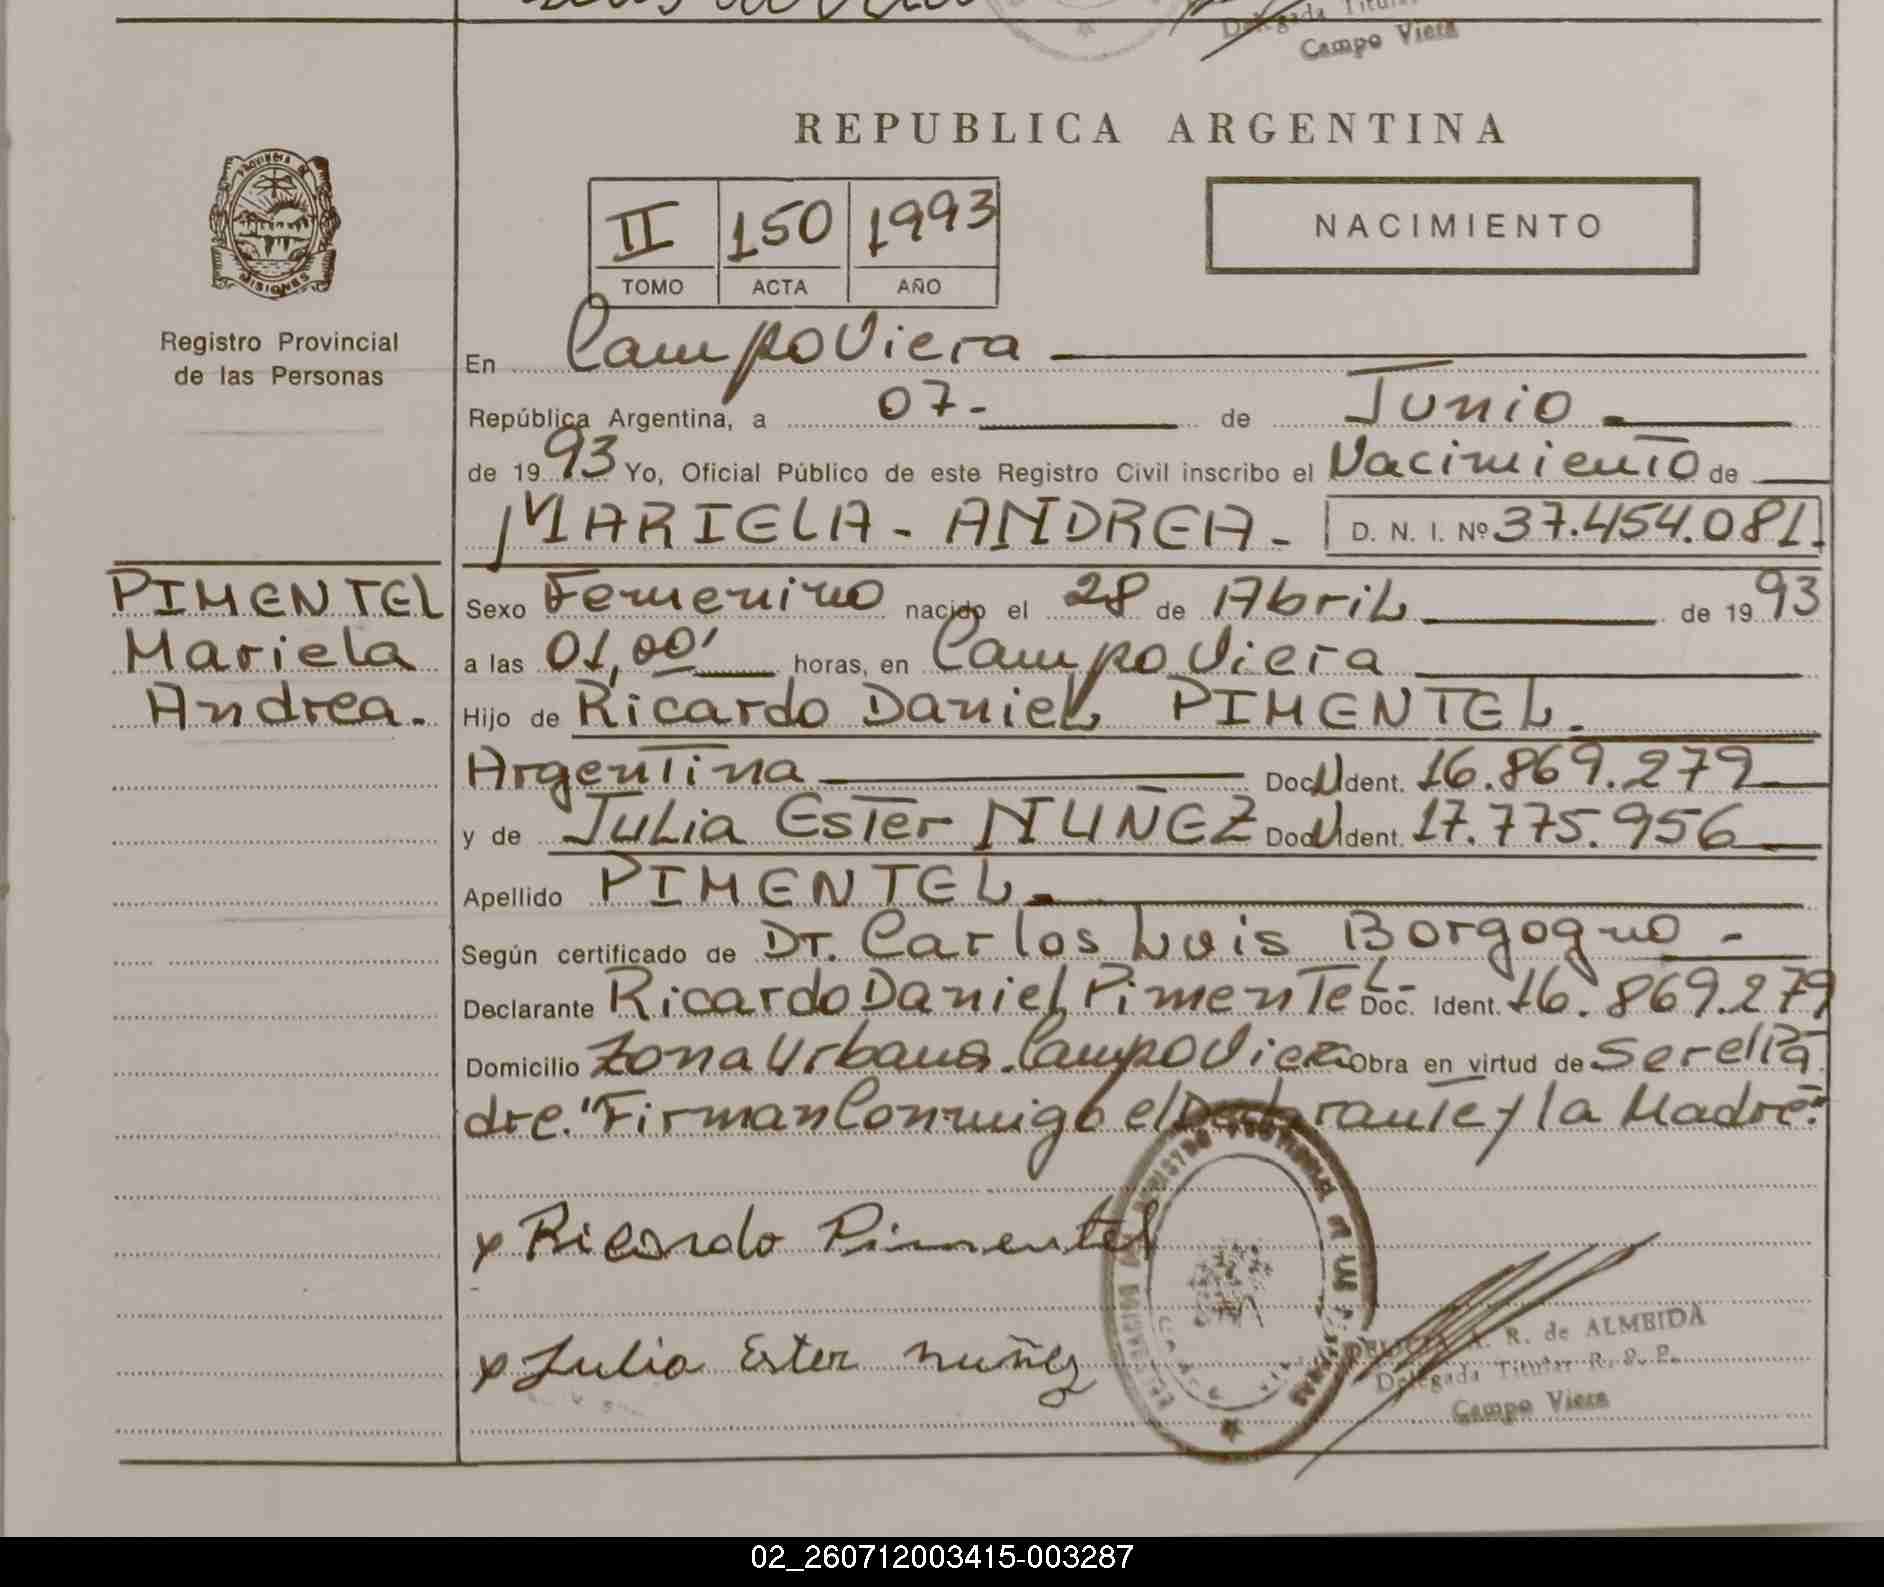 Delegada Titular
Campo Viera
REPUBLICA ARGENTINA
PROVINCIA DE
MISIONES
II 150 1993
TOMO ACTA AÑO
NACIMIENTO
Registro Provincial
de las Personas
En Campo Viera
República Argentina, a 07- de Junio
de 1993 Yo, Oficial Público de este Registro Civil inscribo el Nacimiento de
MARIELA - ANDREA - D. N. I. Nº 37.454.081.
PIMENTEL
Mariela
Andrea.
Sexo Femenino nacido el 28 de Abril de 1993
a las 01,00' horas, en Campo Viera
Hijo de Ricardo Daniel PIMENTEL.
Argentina Doc.U Ident. 16.869.279
y de Julia Ester NUÑEZ Doc.U Ident. 17.775.956
Apellido PIMENTEL.
Según certificado de Dr. Carlos Luis Borgogno -
Declarante Ricardo Daniel Pimentel - Doc. Ident. 16.869.279
Domicilio Zona Urbana. Campo Viera Obra en virtud de Ser el Pa
dre. "Firman Conmigo el Declarante y la Madre."
x Ricardo Pimentel
x Julia Ester Nuñez
A. R. de ALMEIDA
Delegada Titular R. P. P.
Campo Viera
02_260712003415-003287